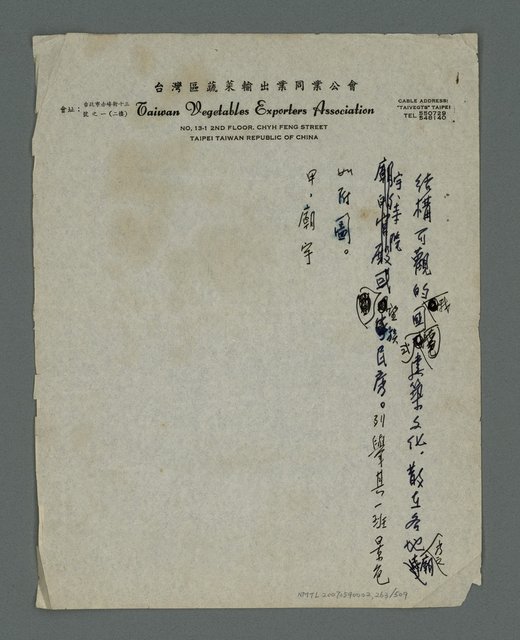 台灣區蔬菜輸出業同業公會
會址：台北市赤峰街十三號之一(二樓)
Taiwan Vegetables Exporters Association
CABLE ADDRESS:
"TAIVEGTS" TAIPEI
TEL 550729
546140
NO, 13-1 2ND FLOOR, CHYH FENG STREET
TAIPEI TAIWAN REPUBLIC OF CHINA
結構可觀的 式建築文化，散在各地
廟宇 或 民房。列舉其一班景色
如附圖。
甲．廟宇
NMTL20070590002,263/509